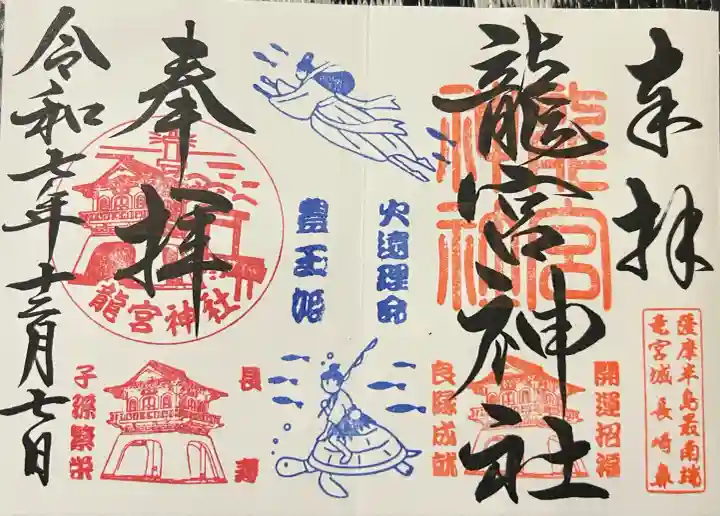 奉拝
龍宮神社
龍宮
神社
開運招福
良縁成就
薩摩半島最南端
竜宮城 長崎鼻
火遠理命
豊玉姫
奉拝
龍宮神社
長寿
子孫繁栄
令和七年十二月七日